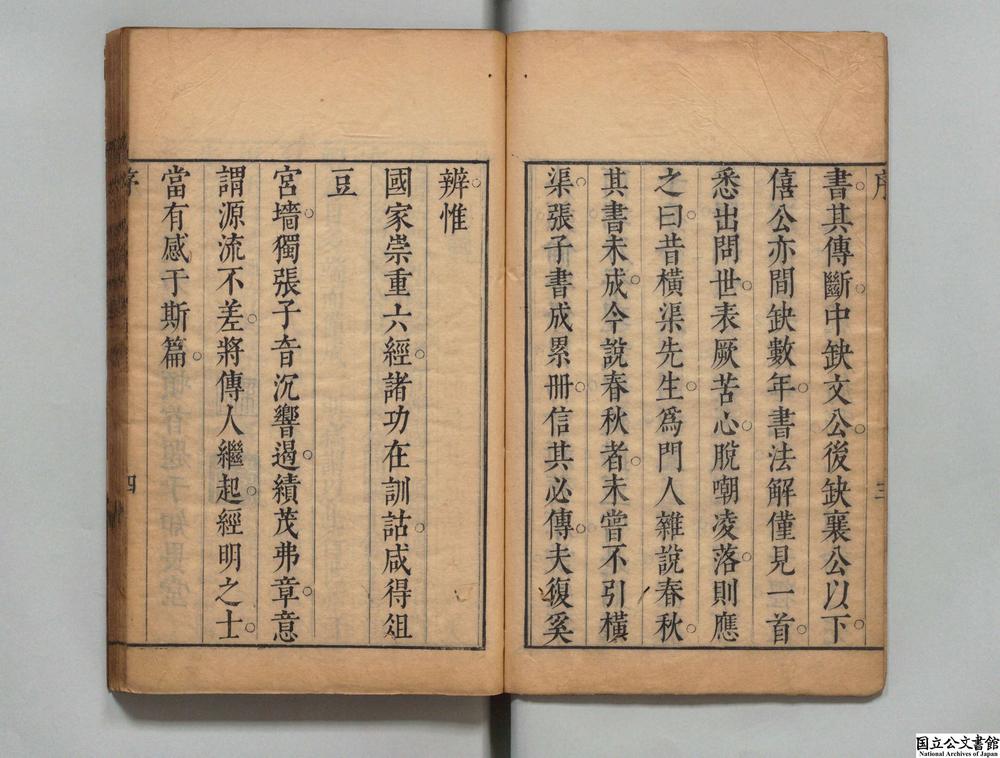 序
書其傳斷中缺文公後缺襄公以下
僖公亦間缺數年書法解僅見一首
悉出問世表厥苦心脫嘲凌落則應
之曰昔橫渠先生爲門人雜說春秋
其書未成今說春秋者未嘗不引橫
渠張子書成累冊信其必傳夫復奚
三
辨惟
國家崇重六經諸功在訓詁咸得俎
豆
宮墻獨張子音沉響遏績茂弗章意
謂源流不差將傳人繼起經明之士
當有感于斯篇
序
四
国立公文書館
National Archives of Japan